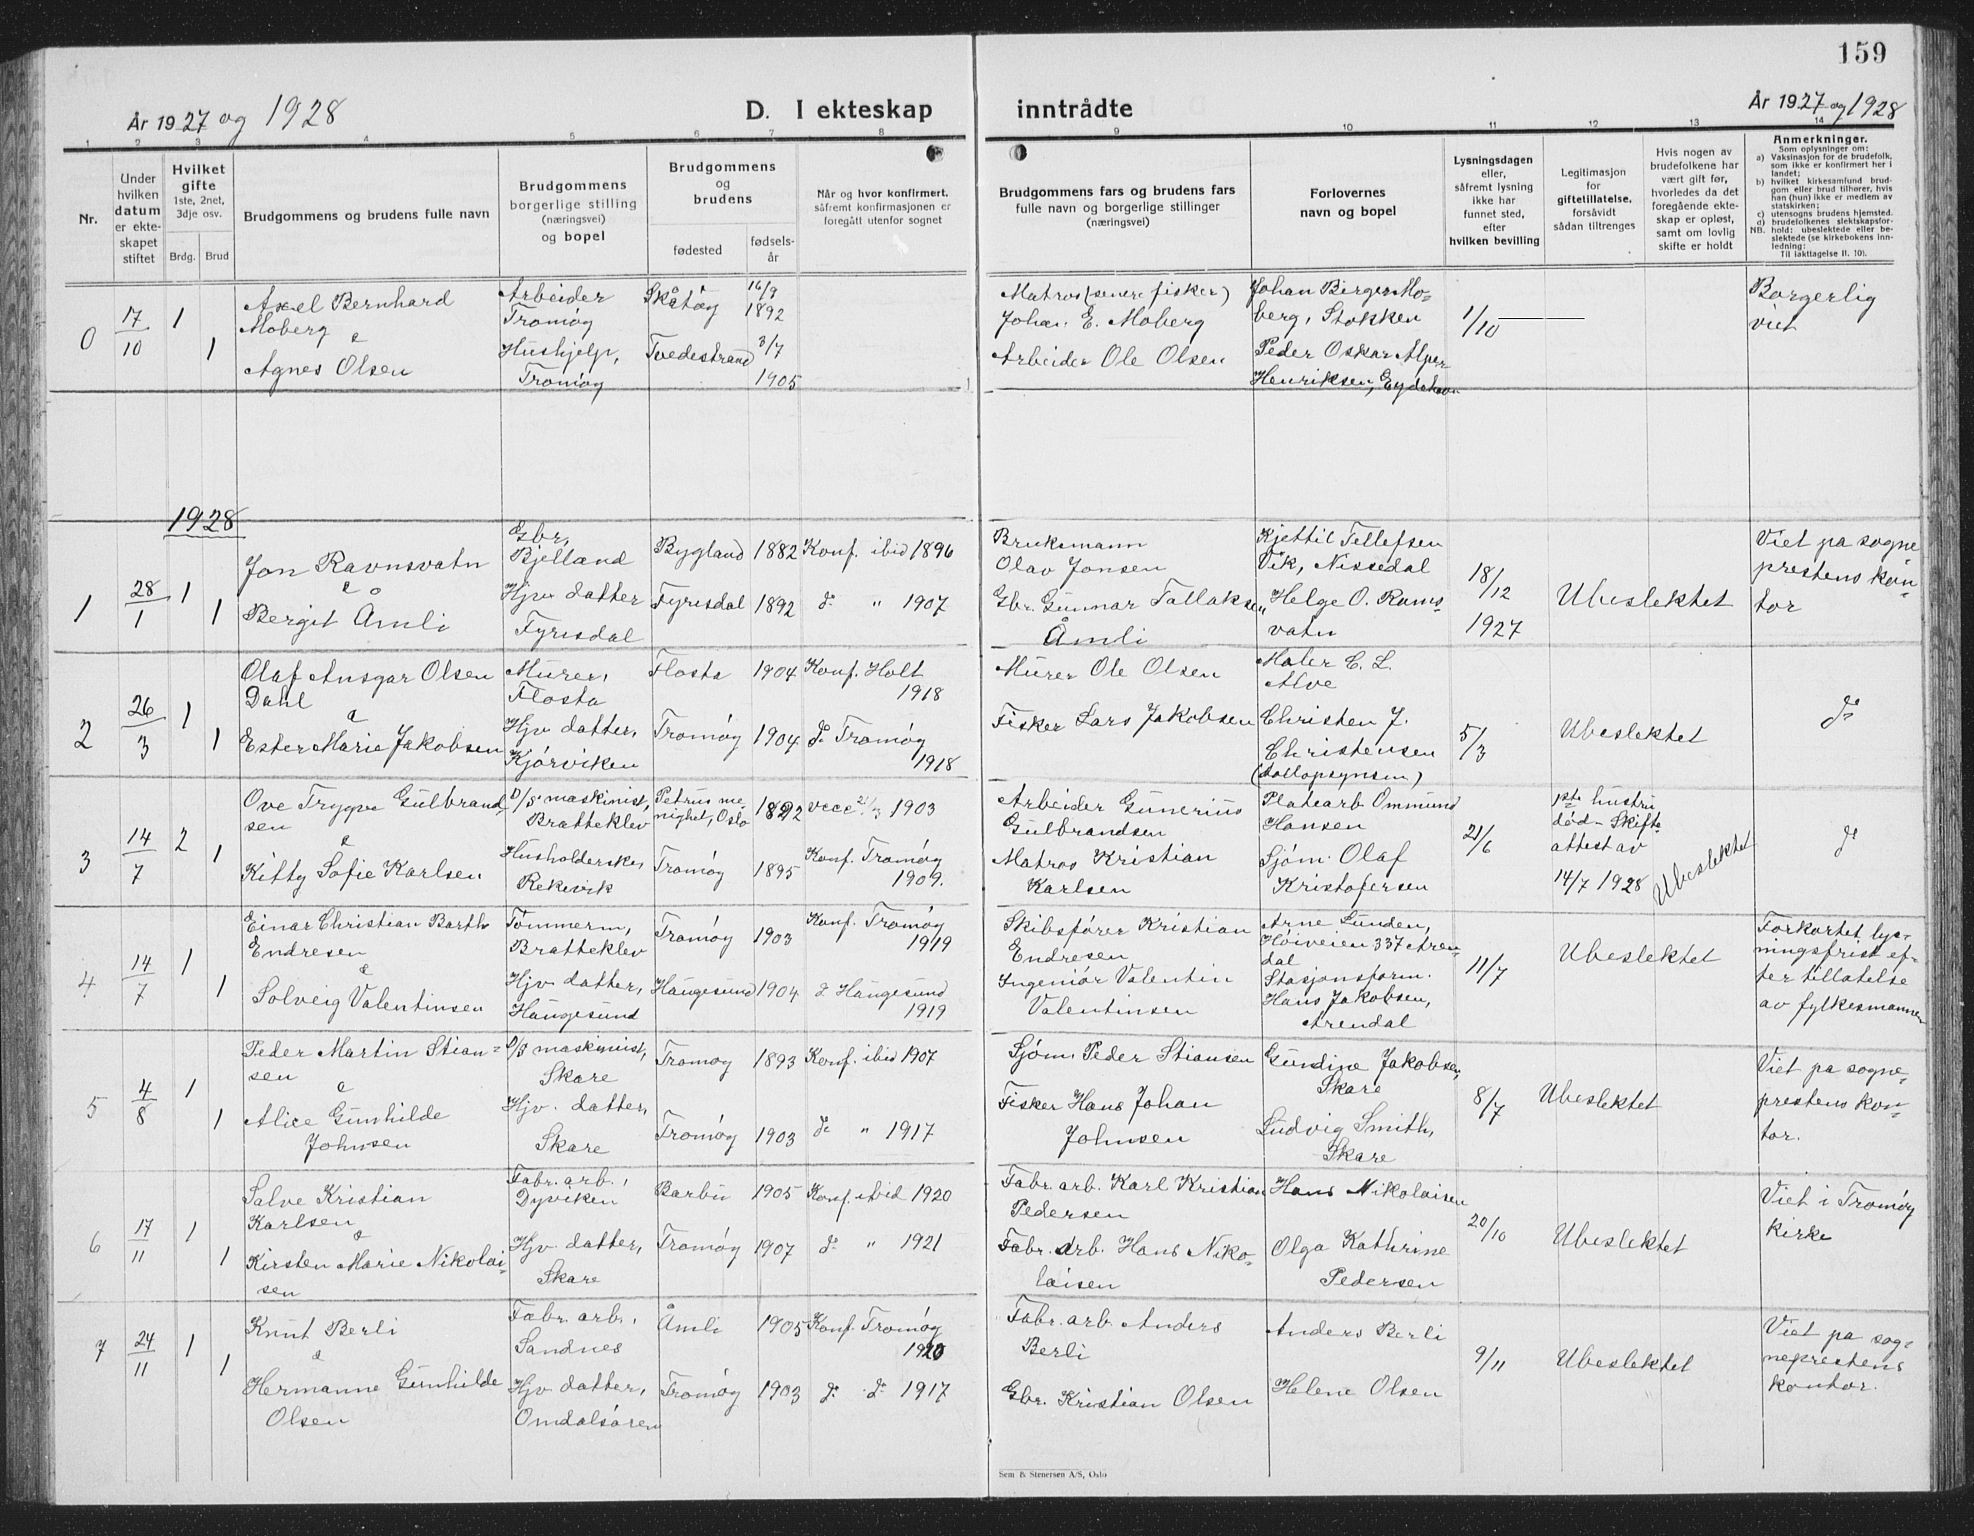 159
År 1927 og 1928
D. I ekteskap inntrådte
År 1927 og 1928
1 2 3 4 5 6 7 8 9 10 11 12 13 14
Nr.
Under hvilken datum er ekteskapet stiftet
Hvilket gifte 1ste, 2net, 3dje osv.
Brdg. Brud
Brudgommens og brudens fulle navn
Brudgommens borgerlige stilling (næringsvei) og bopel
Brudgommens og brudens
fødested
fødsels-år
Når og hvor konfirmert, såfremt konfirmasjonen er foregått utenfor sognet
Brudgommens fars og brudens fars fulle navn og borgerlige stillinger (næringsvei)
Forlovernes navn og bopel
Lysningsdagen eller, såfremt lysning ikke har funnet sted, efter hvilken bevilling
Legitimasjon for giftetillatelse, forsåvidt sådan tiltrenges
Hvis nogen av brudefolkene har vært gift før, hvorledes da det foregående ekteskap er opløst, samt om lovlig skifte er holdt
Anmerkninger.
Som oplysninger om:
a) Vaksinasjon for de brudefolk, som ikke er konfirmert her i landet;
b) hvilket kirkesamfund brudgom eller brud tilhører, hvis han (hun) ikke er medlem av statskirken;
c) utensogns brudens hjemsted.
d) brudefolkenes slektskapsforhold: ubeslektede eller beslektede (se kirkebokens innledning:
NB.
Til iakttagelse II. 10).
0 17/10 1 1
Axel Bernhard
Moberg
&
Agnes Olsen
Arbeider
Tromøy
Hushjelp,
Tromøy
Skåtøy 16/9 1892
Tvedestrand 3/7 1905
Matros (senere fisker)
Johan E. Moberg
Arbeider Ole Olsen
Johan Birger Mo-
berg, Stokken
Peder Oskar
Henriksen, Eydehavn
1/10
Borgerlig
viet
1928
1 28/1 1 1
Jon Ravnsvatn
&
Bergit Åmli
Gbr,
Bjelland
Hjv datter
Fyresdal
Bygland 1882 Konf. ibid 1896
Fyresdal 1892 do " 1907
Bruksmann
Olav Jonsen
Gbr. Gunnar Tallaksen
Åmli
Kjettil Tellefsen
Vik, Nissedal
Helge O. Ravns-
vatn
18/12
1927
Ubeslektet
Viet pa sogne
prestens kon-
tor
2 26/3 1 1
Olaf Ansgar Olsen
Dahl
&
Ester Marie Jakobsen
Murer,
Flosta
Hjv datter,
Kjørviken
Flosta 1904 Konf. Holt
1918
Tromøy 1904 do Tromøy
1918
Murer Ole Olsen
Fisker Lars Jakobsen
Maler C. L.
Alve
Christen J.
Christensen
5/3
Ubeslektet
do
3 14/7 2 1
Ove Trygve Gulbrand
sen
&
Kitty Sofie Karlsen
D/S maskinist,
Bratteklev
Husholderske,
Rekevik
Petrus me-
nighet, Oslo 1892 vacc. 21/3 1903
Tromøy 1895 Konf. Tromøy
1909.
Arbeider Gunerius
Gulbrandsen
Matros Kristian
Karlsen
Platearb Ommund
Hansen
Sjøm. Olaf
Kristofersen
21/6
1ste hustru
død - Skifte
attest av
14/7 1928
Ubeslektet
do
4 14/7 1 1
Einar Christian Barth
Endresen
&
Solveig Valentinsen
Tømmerm,
Bratteklev
Hjv datter,
Haugesund
Tromøy 1903 Konf. Tromøy
1919
Haugesund 1904 do Haugesund
1919
Skibsfører Kristian
Endresen
Ingeniør Valentin
Valentinsen
Arne Lunden,
Høiveien 337 Aren
dal
Stasjonsform.
Hans Jakobsen,
Arendal
11/7
Ubeslektet
Forkortet lys-
ningsfrist ef-
ter tillatelse
av fylkesmannen
5 4/8 1 1
Peder Martin Stian-
sen
&
Alice Gunhilde
Johnsen
D/S maskinist,
Skare
Hjv. datter,
Skare
Tromøy 1893 Konf. ibid 1907
Tromøy 1903 do " 1917
Sjøm. Peder Stiansen
Fisker Hans Johan
Johnsen
Gundine Jakobsen,
Skare
Ludvig Smith,
Skare
8/7
Ubeslektet
Viet pa sogne-
prestens kon-
tor.
6 17/11 1 1
Salve Kristian
Karlsen
&
Kirsten Marie Nikolai-
sen
Fabr. arb.,
Dyviken
Hjv. datter,
Skare
Barbu 1905 Konf. ibid 1920
Tromøy 1907 do " 1921
Fabr. arb. Karl Kristian
Pedersen
Fabr. arb. Hans Niko-
laisen
Hans Nikolaisen
Olga Kathrine
Pedersen
20/10
Ubeslektet
Viet i Tromøy
kirke
7 24/11 1 1
Knut Berli
&
Hermanne Gunhilde
Olsen
Fabr. arb.,
Sandnes
Hjv datter,
Omdalsøren
Åmli 1905 Konf. Tromøy
1920
Tromøy 1903 do do 1917
Fabr. arb. Anders
Berli
Gbr. Kristian Olsen
Anders Berli
Helene Olsen
9/11
Ubeslektet
Viet pa sog-
neprestens
kontor.
Sem & Stenersen A/S, Oslo